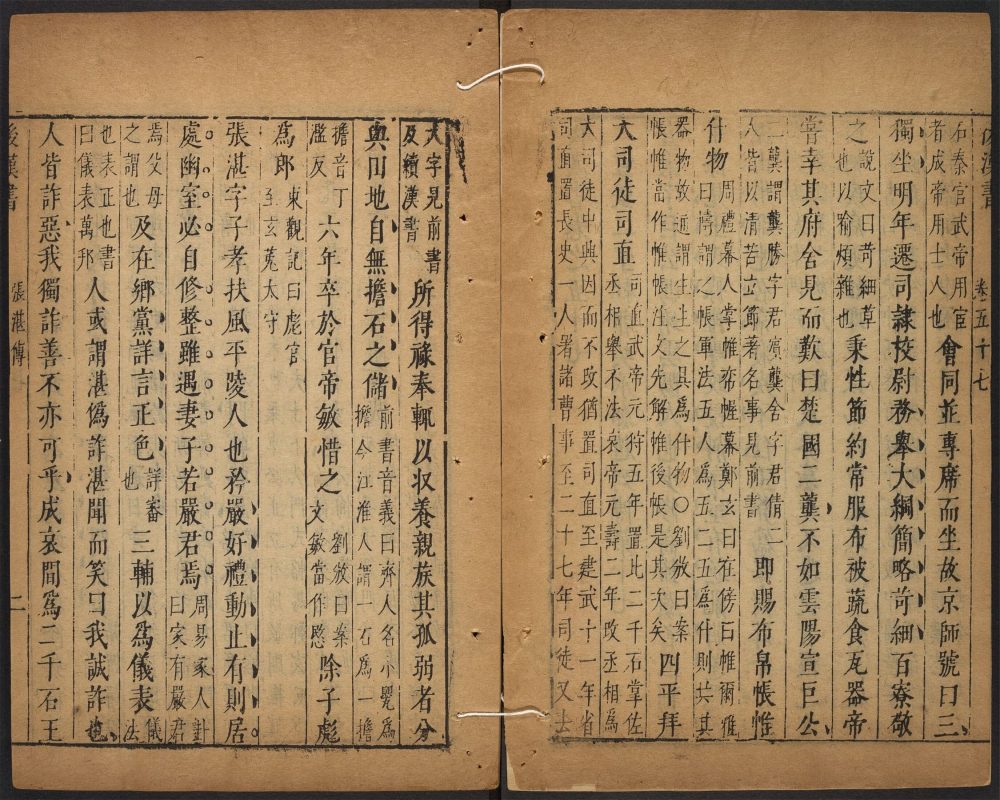 後漢書 卷五十七
右秦官武帝用宦
者成帝用士人也 會同並專席而坐故京師號曰三
獨坐明年遷司隸校尉務舉大綱簡略苛細百寮敬
之 說文曰苛細草
也以喻煩雜也 秉性節約常服布被蔬食瓦器帝
嘗幸其府舍見而歎曰楚國二龔不如雲陽宣巨公
二龔謂龔勝字君賓龔舍字君倩二
人皆以清苦立節著名事見前書 即賜布帛帳帷
什物 周禮幕人掌帷帟幄幕鄭玄曰在傍曰帷爾雅
曰幬謂之帳軍法五人為五二五為什則共其
器物故通謂生生之具為什物○劉攽曰案
帳帷當作帷帳注文先解帷後帳是其次矣 四平拜
大司徒司直 司直武帝元狩五年置比二千石掌佐
丞相舉不法哀帝元壽二年改丞相為
大司徒中興因而不改猶置司直至建武十一年省
司直置長史一人署諸曹事至二十七年司徒又去
大字見前書
及續漢書 所得祿奉輒以收養親族其孤弱者分
與田地自無擔石之儲 前書音義曰齊人名小甖為
擔今江淮人謂一石為一擔
擔音丁
濫反 六年卒於官帝敏惜之 劉攽曰案
文敏當作愍 除子彪
為郎 東觀記曰彪官
至玄菟太守
張湛字子孝扶風平陵人也矜嚴好禮動止有則居
處幽室必自修整雖遇妻子若嚴君焉 周易家人卦
曰家有嚴君
焉父母
之謂也 及在鄉黨詳言正色 詳審
也 三輔以為儀表 儀
法
也表正也書
曰儀表萬邦 人或謂湛偽詐湛聞而笑曰我誠詐也
人皆詐惡我獨詐善不亦可乎成哀間為二千石王
後漢書 張湛傳 二